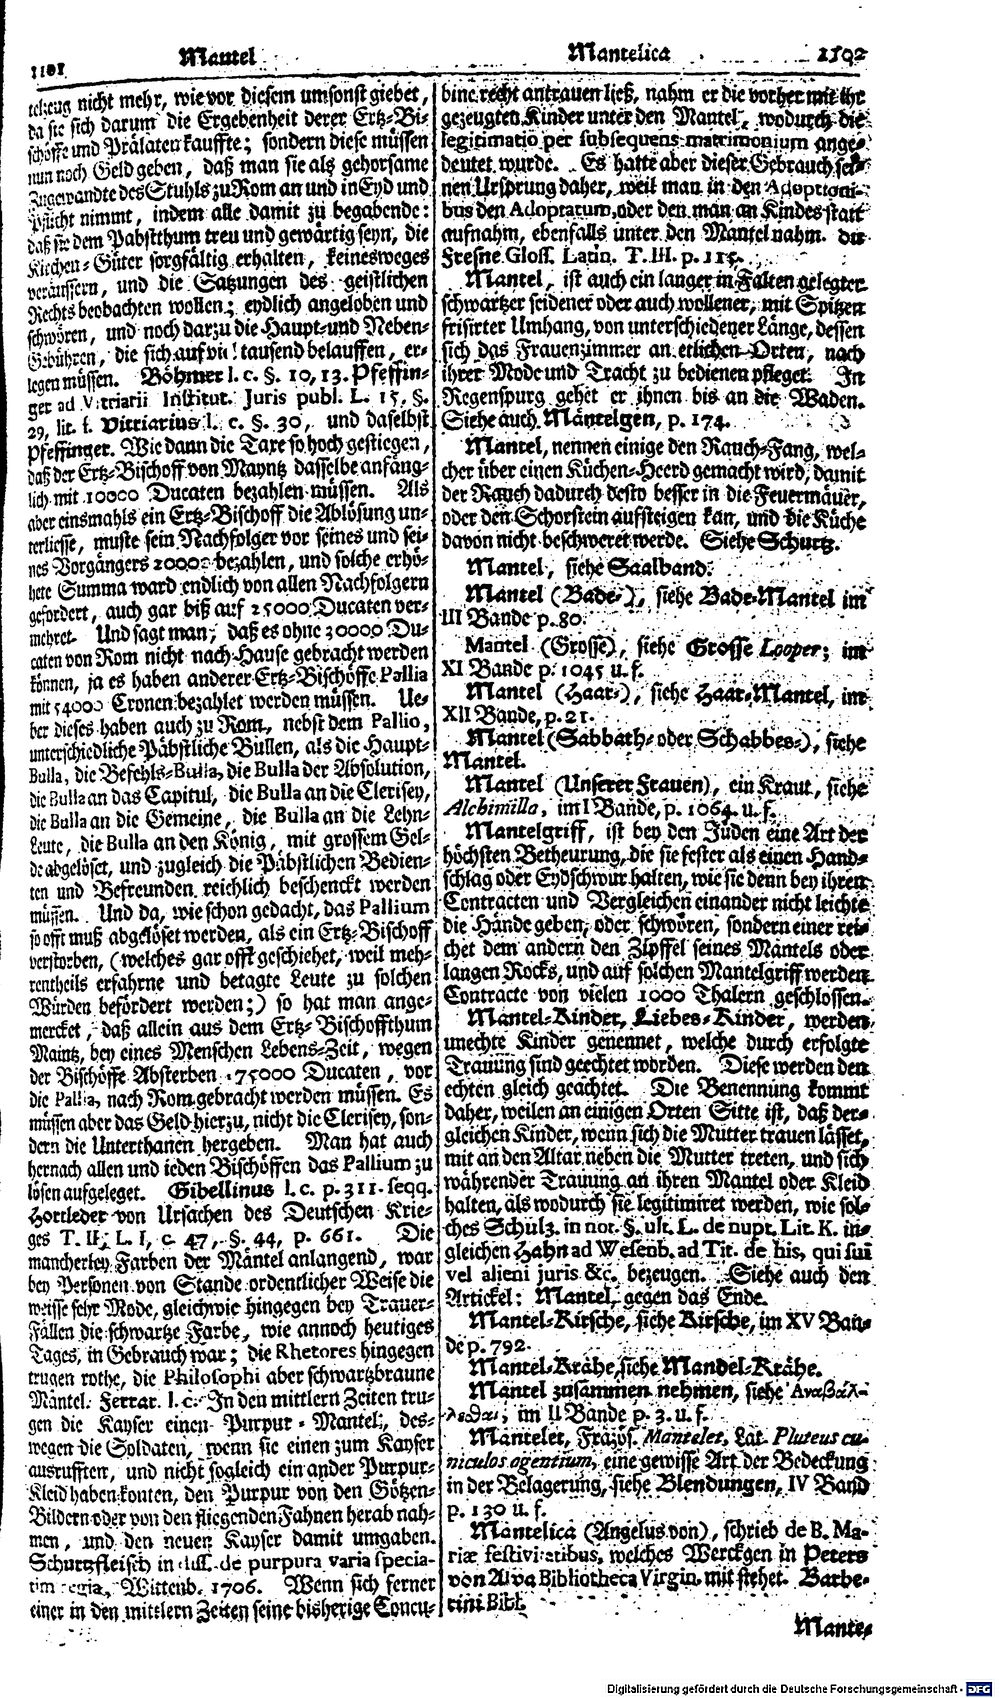 1101 Mantel
telzeug nicht mehr, wie vor diesem umsonst giebet,
da sie sich darum die Ergebenheit derer Ertz-Bi-
schöffe und Prälaten kauffte; sondern diese müssen
nun noch Geld geben, daß man sie als gehorsame
Zugewandte des Stuhls zu Rom an und in Eyd und
Pflicht nimmt, indem alle damit zu begabende:
daß sie dem Pabstthum treu und gewärtig seyn, die
Kirchen-Güter sorgfältig erhalten, keinesweges
veräussern, und die Satzungen des geistlichen
Rechts beobachten wollen; eydlich angeloben und
schwören, und noch darzu die Haupt- und Neben-
Gebühren, die sich auf viel tausend belauffen, er-
legen müssen. Böhmer l. c. §. 10, 13. Pfeffin-
ger ad Vitriarii Institut. Juris publ. L. 15. §.
29, lit. f. Vitriarius l. c. §. 30, und daselbst
Pfeffinger. Wie dann die Taxe so hoch gestiegen,
daß der Ertz-Bischoff von Mayntz dasselbe anfäng-
lich mit 10000 Ducaten bezahlen müssen. Als
aber einsmahls ein Ertz-Bischoff die Ablösung un-
terliesse, muste sein Nachfolger vor seines und sei-
nes Vorgängers 20000 bezahlen, und solche erhö-
hete Summa ward endlich von allen Nachfolgern
gefordert, auch gar biß auf 25000 Ducaten ver-
mehret. Und sagt man, daß es ohne 30000 Du-
caten von Rom nicht nach Hause gebracht werden
können, ja es haben anderer Ertz-Bischöffe Pallia
mit 54000 Cronen bezahlet werden müssen. Ue-
ber dieses haben auch zu Rom, nebst dem Pallio,
unterschiedliche Päbstliche Bullen, als die Haupt-
Bulla, die Befehls-Bulla, die Bulla der Absolution,
die Bulla an das Capitul, die Bulla an die Clerisey,
die Bulla an die Gemeine, die Bulla an die Lehn-
Leute, die Bulla an den König, mit grossem Gel-
de abgelöset, und zugleich die Päbstlichen Bedien-
ten und Befreunden reichlich beschenckt werden
müssen. Und da, wie schon gedacht, das Pallium
so offt muß abgelöset werden, als ein Ertz-Bischoff
verstorben, (welches gar offt geschiehet, weil meh-
rentheils erfahrne und betagte Leute zu solchen
Würden befördert werden;) so hat man ange-
mercket, daß allein aus dem Ertz-Bischoffthum
Maintz, bey eines Menschen Lebens-Zeit, wegen
der Bischöffe Absterben 175000 Ducaten, vor
die Pallia, nach Rom gebracht werden müssen. Es
müssen aber das Geld hierzu, nicht die Clerisey, son-
dern die Unterthanen hergeben. Man hat auch
hernach allen und ieden Bischöffen das Pallium zu
lösen aufgeleget. Gibellinus l. c. p. 311. seqq.
Hortleder von Ursachen des Deutschen Krie-
ges T. II, L. I, c. 47, §. 44, p. 661. Die
mancherley Farben der Mäntel anlangend, war
bey Personen von Stande ordentlicher Weise die
weisse sehr Mode, gleichwie hingegen bey Trauer-
Fällen die schwartze Farbe, wie annoch heutiges
Tages, in Gebrauch war; die Rhetores hingegen
trugen rothe, die Philosophi aber schwartzbraune
Mäntel. Ferrar. l. c. In den mittlern Zeiten tru-
gen die Kayser einen Purpur-Mantel, des-
wegen die Soldaten, wenn sie einen zum Kayser
ausrufften, und nicht sogleich ein ander Purpur-
Kleid haben konten, den Purpur von den Götzen-
Bildern oder von den fliegenden Fahnen herab nah-
men, und den neuen Kayser damit umgaben.
Schurtzfleisch in diss. de purpura varia specia-
tim regia, Wittenb. 1706. Wenn sich ferner
einer in den mittlern Zeiten seine bisherige Concu-
Mantelica 1102
bine recht antrauen ließ, nahm er die vorher mit ihr
gezeugten Kinder unter den Mantel, wodurch die
legitimatio per subsequens matrimonium ange-
deutet wurde. Es hatte aber dieser Gebrauch sei-
nen Ursprung daher, weil man in den Adoptioni-
bus den Adoptatum, oder den man an Kindes statt
aufnahm, ebenfalls unter den Mantel nahm. du
Fresne Gloss. Latin. T. III. p. 115.
Mantel, ist auch ein langer in Falten gelegter
schwartzer seidener oder auch wollener, mit Spitzen
frisirter Umhang, von unterschiedener Länge, dessen
sich das Frauenzimmer an etlichen Orten, nach
ihrer Mode und Tracht zu bedienen pfleget. In
Regenspurg gehet er ihnen bis an die Waden.
Siehe auch Mäntelgen, p. 174.
Mantel, nennen einige den Rauch-Fang, wel-
cher über einen Küchen-Heerd gemacht wird, damit
der Rauch dadurch desto besser in die Feuermäuer,
oder den Schorstein aufsteigen kan, und die Küche
davon nicht beschweret werde. Siehe Schurtz.
Mantel, siehe Saalband.
Mantel (Bade-), siehe Bade-Mantel im
III Bande p. 80.
Mantel (Grosse), siehe Grosse Looper; im
XI Bande p. 1045 u. f.
Mantel (Haar-), siehe Haar-Mantel, im
XII Bande, p. 21.
Mantel (Sabbath- oder Schabbes-), siehe
Mantel.
Mantel (Unserer Frauen), ein Kraut, siehe
Alchimilla, im I Bande, p. 1064. u. f.
Mantelgriff, ist bey den Jüden eine Art der
höchsten Betheurung, die sie fester als einen Hand-
schlag oder Eydschwur halten, wie sie denn bey ihren
Contracten und Vergleichen einander nicht leichte
die Hände geben, oder schwören, sondern einer rei-
chet dem andern den Zipffel seines Mantels oder
langen Rocks, und auf solchen Mantelgriff werden
Contracte von vielen 1000 Thalern geschlossen.
Mantel-Kinder, Liebes-Kinder, werden
unechte Kinder genennet, welche durch erfolgte
Trauung sind geechtet worden. Diese werden den
echten gleich geachtet. Die Benennung kommt
daher, weilen an einigen Orten Sitte ist, daß der-
gleichen Kinder, wenn sich die Mutter trauen lässet,
mit an den Altar neben die Mutter treten, und sich
währender Trauung an ihren Mantel oder Kleid
halten, als wodurch sie legitimiret werden, wie sol-
ches Schulz. in not. §. ult. L. de nupt. Lit. K. in-
gleichen Hahn ad Wesenb. ad Tit. de his, qui sui
vel alieni juris &c. bezeugen. Siehe auch den
Artickel: Mantel, gegen das Ende.
Mantel-Kirsche, siehe Kirsche, im XV Ban-
de p. 792.
Mantel-Krähe, siehe Mandel-Krähe.
Mantel zusammen nehmen, siehe Αναβάλ-
λεσθαι, im II Bande p. 3. u. f.
Mantelet, Frazös. Mantelet, Lat. Pluteus cu-
niculos agentium, eine gewisse Art der Bedeckung
in der Belagerung, siehe Blendungen, IV Band
p. 130 u. f.
Mantelica (Angelus von), schrieb de B. Ma-
riæ festivitatibus, welches Werckgen in Peters
von Alva Bibliotheca Virgin. mit stehet. Barbe-
rini Bibl.
Mante-
Digitalisierung gefördert durch die Deutsche Forschungsgemeinschaft - DFG